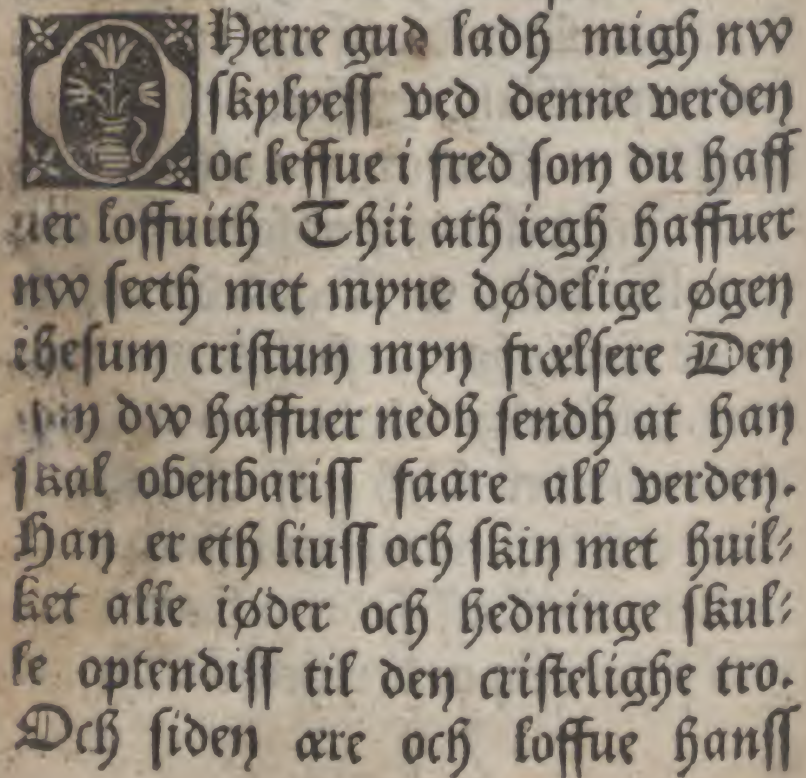 O Herre gud ladh migh nw
skylyess ved denne verden
oc leffue i fred som du haff
uer loffuith Thii ath iegh haffuer
nw seeth met myne dødelige øgen
ihesum cristum myn frælsere Den
dw haffuer nedh sendh at han
skal obenbariss faare all verden.
Han er eth liuss och skin met huil⸗
ket alle iøder och hedninge skul⸗
le optendiss til den cristelighe tro.
Och siden ære och loffue hanss